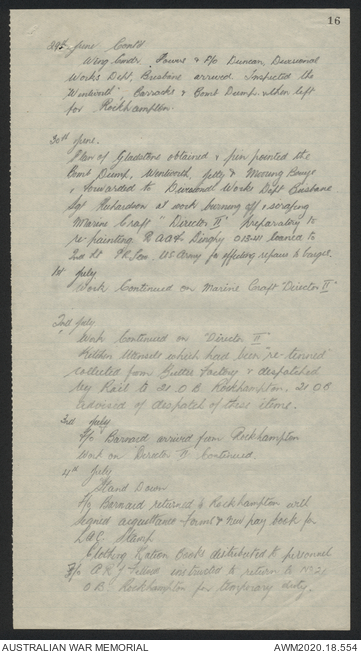 16
29th June Cont'd
Wing Cmdr. Powne & P/O Duncan, Divisional
Works Dept, Brisbane arrived. Inspected the
"Wentworth", Barracks & Bomb Dump, & then left
for Rockhampton.
30th June.
Plan of Gladstone obtained & pin pointed the
Bomb Dump, Wentworth, Jetty & Mooring Buoys
& forwarded to Divisional Works Dept Brisbane
Sgt Richardson at work burning off & scraping
Marine Craft "Director II" preparatory to
re-painting. RAAF Dinghy 013-41 loaned to
2nd Lt US Army for effecting repairs to barge.
1st July
Work Continued on Marine Craft "Director II"
2nd July.
Work Continued on "Director II"
Kitchen Utensils which had been "re-tinned"
collected from Butter Factory & despatched
by Rail to 21 O B Rockhampton. 21 OB
advised of despatch of these items.
3rd July
F/O Barnard arrived from Rockhampton
Work on Director II Continued.
4th July
Stand Down
F/O Barnard returned to Rockhampton with
signed acquittance forms & new pay book for
LAC. Stamp
Clothing Ration Books distributed to personnel
F/O A R J instructed to return to
O.B. Rockhampton for temporary duty.
AUSTRALIAN WAR MEMORIAL
AWM2020.18.554